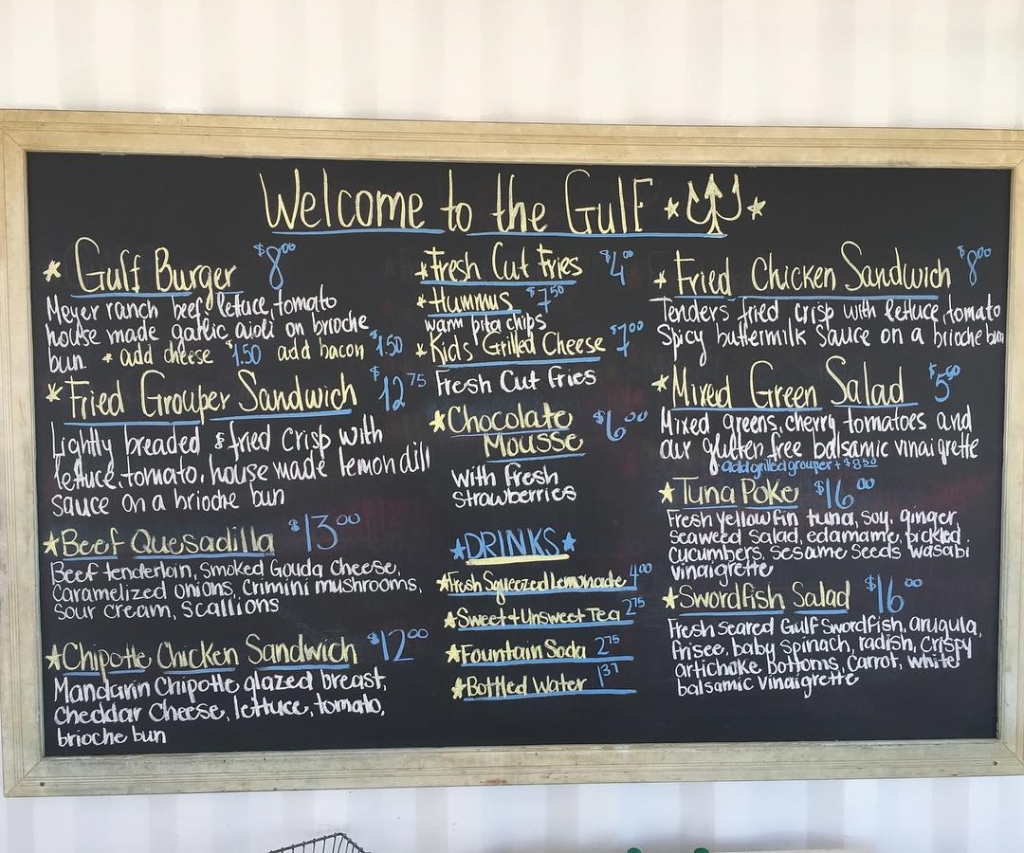 Welcome to the Gulf
Gulf Burger $8.00
Meyer ranch beef, lettuce, tomato
house made garlic aioli on brioche
bun * add cheese $1.50 add bacon $1.50
Fried Grouper Sandwich $12.75
Lightly breaded & fried crisp with
lettuce, tomato, house made lemon dill
sauce on a brioche bun
Beef Quesadilla $13.00
Beef tenderloin, smoked Gouda cheese,
Caramelized onions, Crimini mushrooms,
Sour cream, scallions
Chipotle Chicken Sandwich $12.00
Mandarin Chipotle glazed breast,
Cheddar Cheese, lettuce, tomato,
brioche bun
Fresh Cut Fries $4.00
Hummus $7.50
warm pita chips
Kids' Grilled Cheese $7.00
Fresh Cut Fries
Chocolate
Mousse $6.00
with Fresh
Strawberries
DRINKS
Fresh Squeezed Lemonade 4.00
Sweet + Unsweet Tea 2.75
Fountain Soda 2.75
Bottled Water 1.37
Fried Chicken Sandwich $8.00
Tenders fried crisp with lettuce, tomato
Spicy buttermilk Sauce on a brioche bun
Mixed Green Salad $5.00
Mixed greens, cherry tomatoes and
our gluten free balsamic vinaigrette
add grilled grouper + $8.50
Tuna Poke $16.00
Fresh yellowfin tuna, soy, ginger
seaweed salad, edamame, pickled
cucumbers, sesame seeds wasabi
vinaigrette
Swordfish Salad $16.00
Fresh seared Gulf swordfish, arugula,
frisee, baby spinach, radish, crispy
artichoke bottoms, carrot, white
balsamic vinaigrette